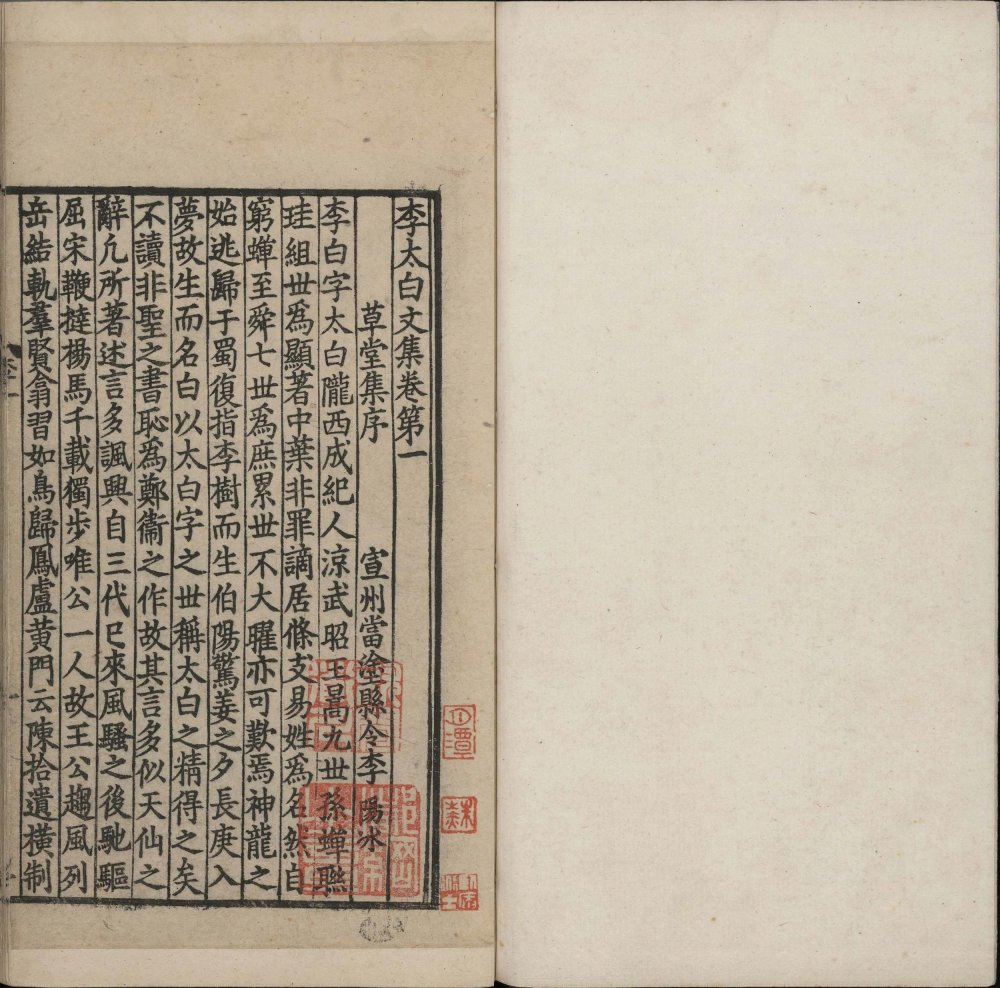 李太白文集卷第一
草堂集序 宣州當塗縣令李陽冰
李白字太白隴西成紀人涼武昭王暠九丗孫蟬聮
珪組丗爲顯著中葉非罪謫居條支易姓爲名然自
窮蟬至舜七丗爲庶累丗不大曜亦可歎焉神龍之
始逃歸于蜀復指李樹而生伯陽驚姜之夕長庚入
夢故生而名白以太白字之丗稱太白之精得之矣
不讀非聖之書恥爲鄭衞之作故其言多似天仙之
辭凢所著述言多諷興自三代已來風騷之後馳驅
屈宋鞭撻楊馬千載獨步唯公一人故王公趨風列
岳結軌羣賢翕習如鳥歸鳳盧黃門云陳拾遺橫制